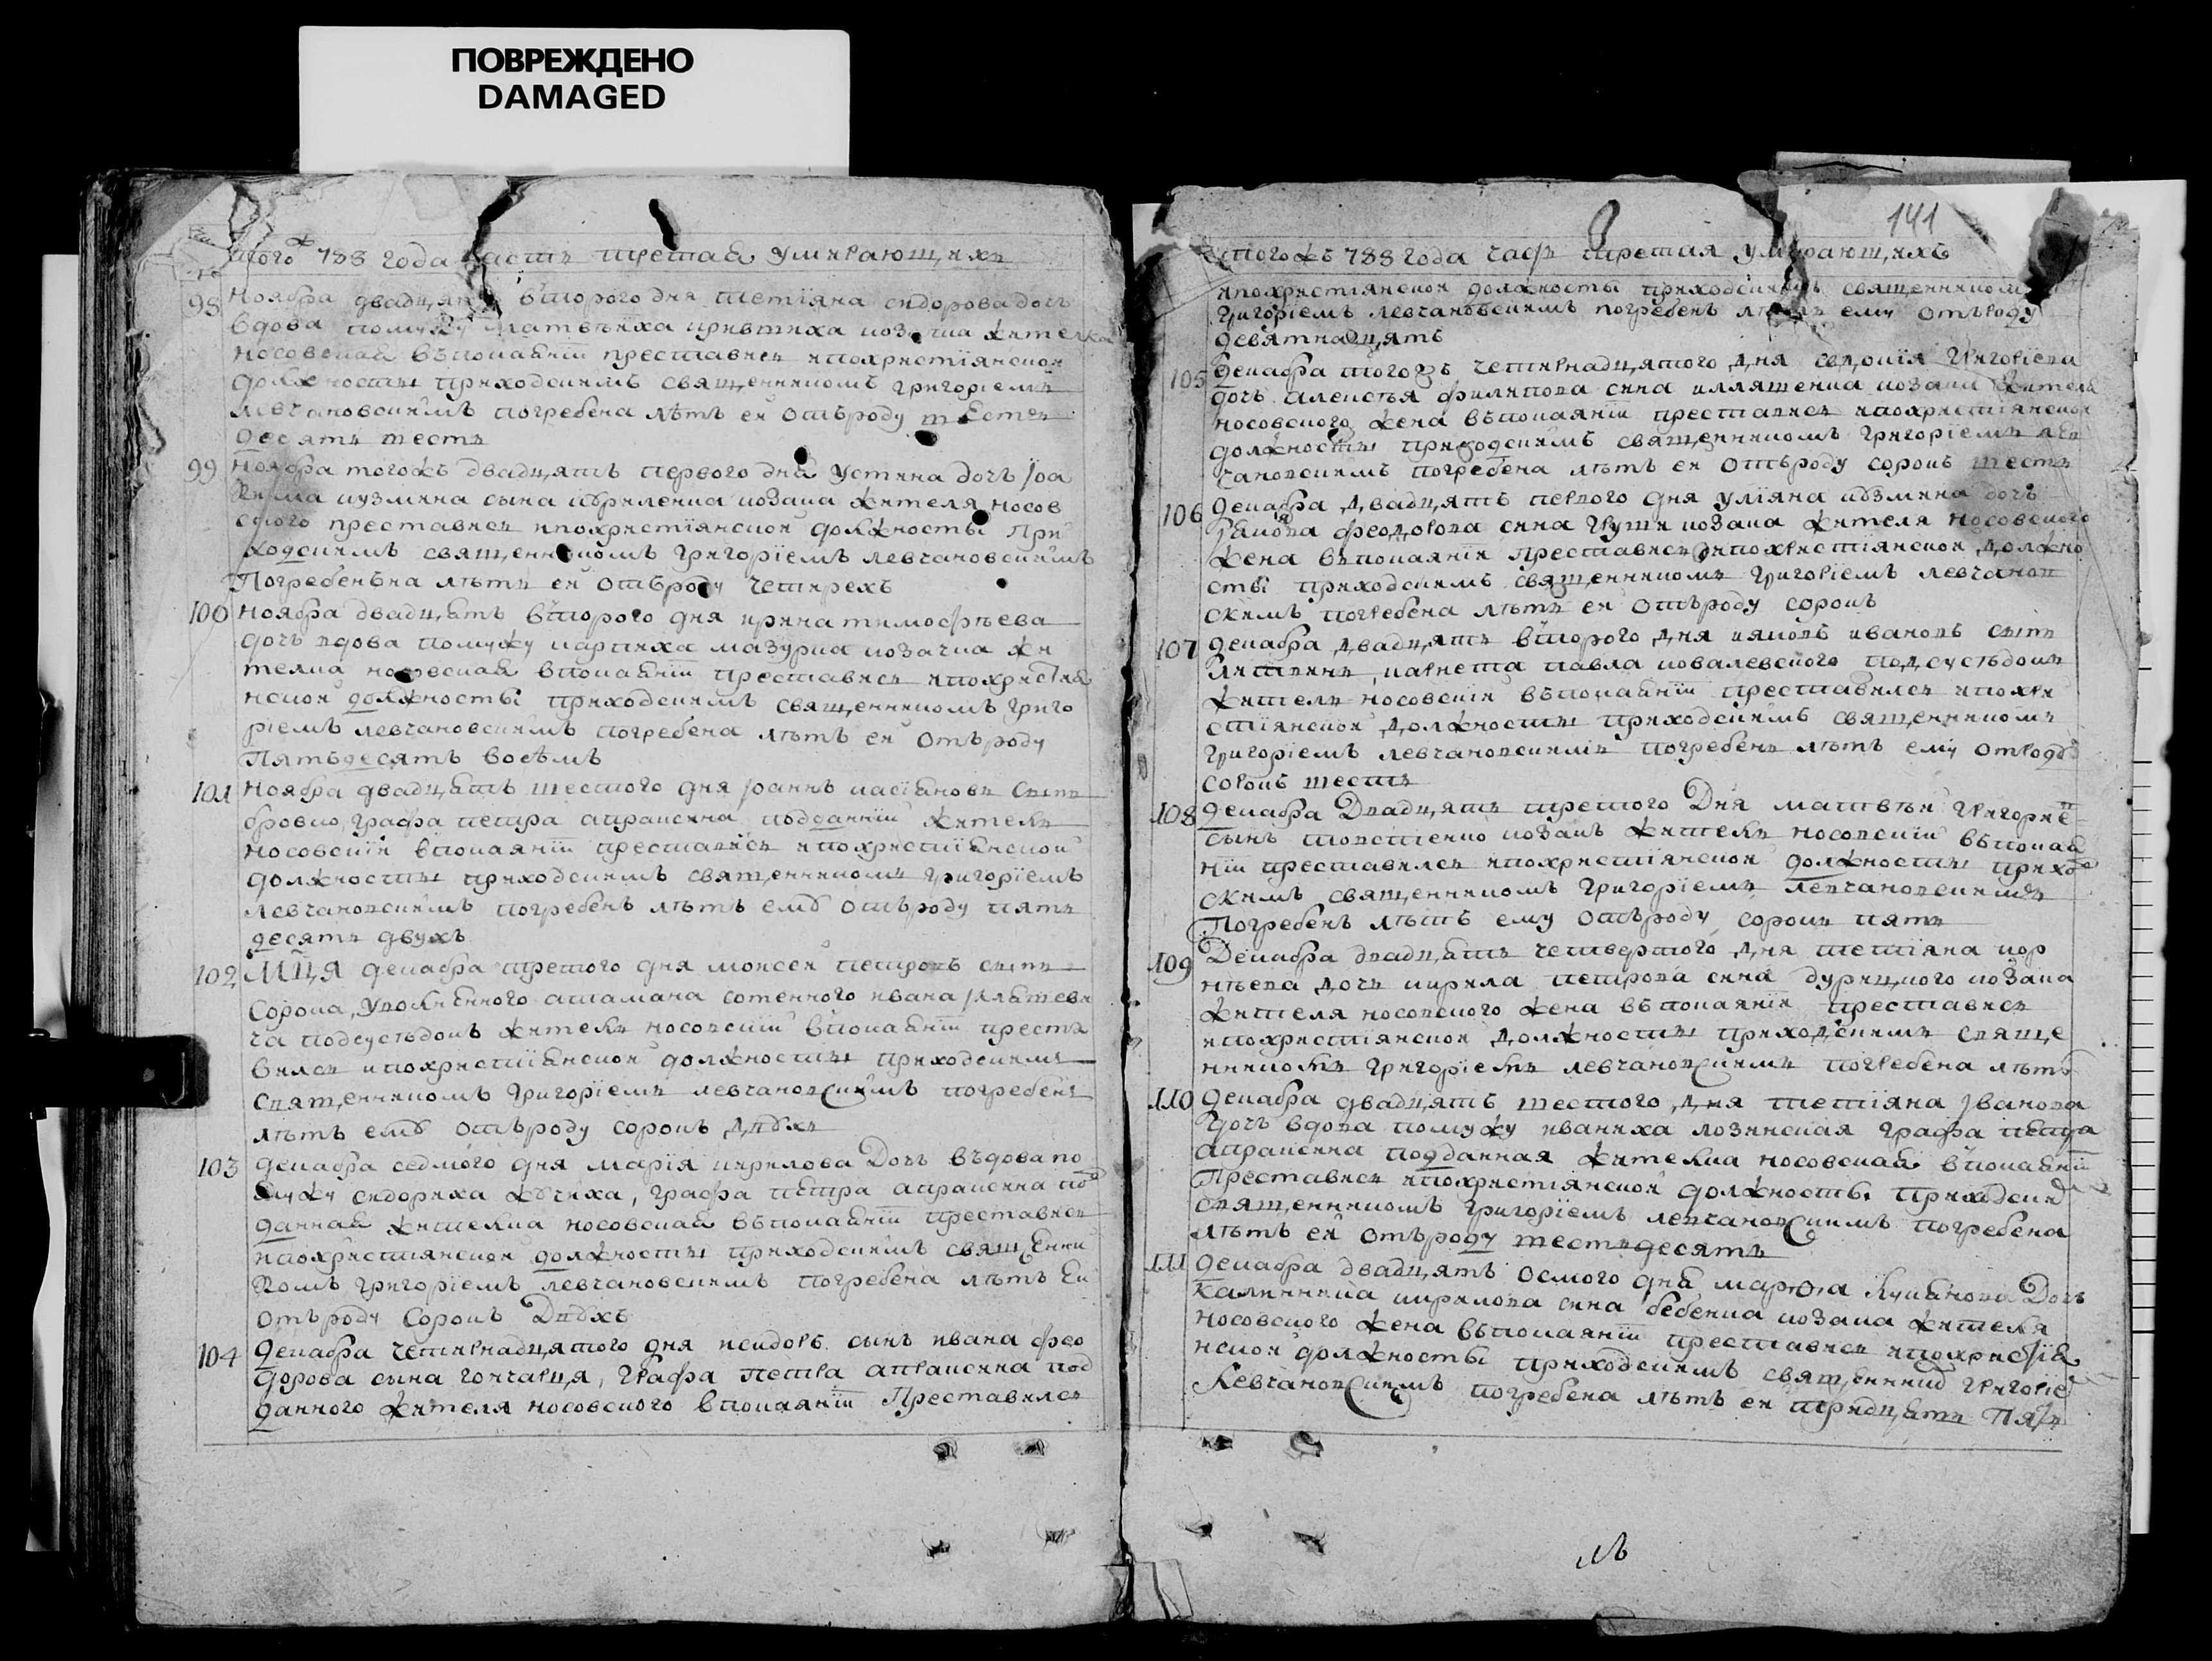 ПОВРЕЖДЕНО
DAMAGED
того ж 788 года часть третая умирающихъ
98 Ноября двадцять второго дня тетіяна сидорова дочъ
вдова помужу матвѣиха козачка жителка
носовская въпокаяніи преставись ипохристіянскои
должносты приходскимъ священникомъ григоріемъ
левчановскимъ погребена лѣтъ еи отъроду шесть
десятъ шесть
99 Ноября тогожъ двадцять первого дня устина дочъ Іоа
кима кузмина сына козака жителя носов
ского преставись ипохристіянскои должносты при
ходскимъ священникомъ григоріемъ левчановскимъ
Погребенъна лѣтъ еи отъроду четирехъ
100 Ноября двадцять второго дня ирина тимофѣева
дочъ вдова помужу карпиха мазурка козачка жи
телка носовская впокаяніи преставись ипохристія
нскои должносты приходскимъ священникомъ григо
ріемъ левчановскимъ погребена лѣтъ еи отъроду
Пятъдесятъ восѣмъ
101 Ноября двадцять шестого дня Іоаннъ касіяновъ сынъ
бровко, графа петра апраксина подданній житель
носовскіи впокаяніи преставись ипохристіянскои
должносты приходскимъ священникомъ григоріемъ
левчановскимъ погребенъ лѣтъ ему отъроду пять
десятъ двухъ
102 Мця декабря третого дня моисеи петровъ сынъ
сорока, уволненного атамана сотенного ивана Іляшеви
ча подсусѣдокъ житель носовскіи впокаяніи преста
вилсь ипохристіянскои должносты приходскимъ
священникомъ григоріемъ левчановскимъ погребенъ
лѣтъ ему отъроду сорокъ двухъ
103 декабря седмого дня марія кирилова дочъ въдова по
мужу сидориха жучиха, графа петра апраксина под
данная жителка носовская въпокаяніи преставись
ипохристіянскои должносты приходскимъ священни
комъ григоріемъ левчановскимъ погребена лѣтъ еи
отъроду сорокъ двухъ
104 декабря четирнадцятого дня исидоръ сынъ ивана фео
дорова сына гончарця, графа петра апраксина под
данного жителя носовского впокаяніи Преставилсь
141
тогожъ 788 года часть третая умирающихъ
ипохристіянскои должносты приходскимъ священником
григоріемъ левчановскимъ погребенъ лѣтъ ему отъроду
девятнадцять
105 декабря тогожъ четирнадцятого дня евдокія григоріева
дочъ алексѣя филипова сина илляшенка козака жителя
носовского жена въпокаяніи преставись ипохристіянскои
должносты приходскимъ священникомъ григоріемъ лев
чановскимъ погребена лѣтъ еи отъроду сорокъ шесть
106 декабря двадцять первого дня уліяна кузмина дочъ
Іакова феодорова сина групи козака жителя носовского
жена въпокаянія преставись ипохристіянскои должно
сты приходскимъ священникомъ григоріемъ левчанов
скимъ погребена лѣтъ еи отъроду сорокъ
107 декабря двадцять второго дня иаковъ ивановъ сынъ
павла ковалевского подсусѣдокъ
житель носовскіи въпокаяніи преставилсь ипохри
стіянскои должносты приходскимъ священникомъ
григоріемъ левчановскимъ погребенъ лѣтъ ему отроду
сорокъ шесть
108 декабря двадцять третого дня матвѣи григорие
сынъ товстенко козакъ житель носовскіи въпокая
ніи преставилсь ипохристіянскои должносты приход
скимъ священникомъ григоріемъ левчановскимъ
Погребенъ лѣтъ ему отъроду сорокъ пять
109 декабря двадцять четвертого дня тетіяна кор
нѣева дочъ кирила петрова сина дурицкого козака
жителя носовского жена въпокаяніи преставись
ипохристіянскои должносты приходскимъ свяще
нникомъ григоріемъ левчановскимъ погребена лѣтъ
110 декабря двадцять шестого дня тетіяна Іванова
дочъ вдова помужу иваниха лозинская графа петра
апраксина подданная жителка носовская впокаяніи
Преставись ипохристіянскои должносты приходски
священникомъ григоріемъ левчановскимъ погребена
лѣтъ еи отъроду шестьдесятъ
111 декабря двадцять осмого дня марфа лукянова дочъ
калинника кирилова сина бебенка козака жителя
носовского жена въпокаяніи преставись ипохристія
нскои должносты приходскимъ священнико григоріе
левчановскимъ погребена лѣтъ еи тридцять пять